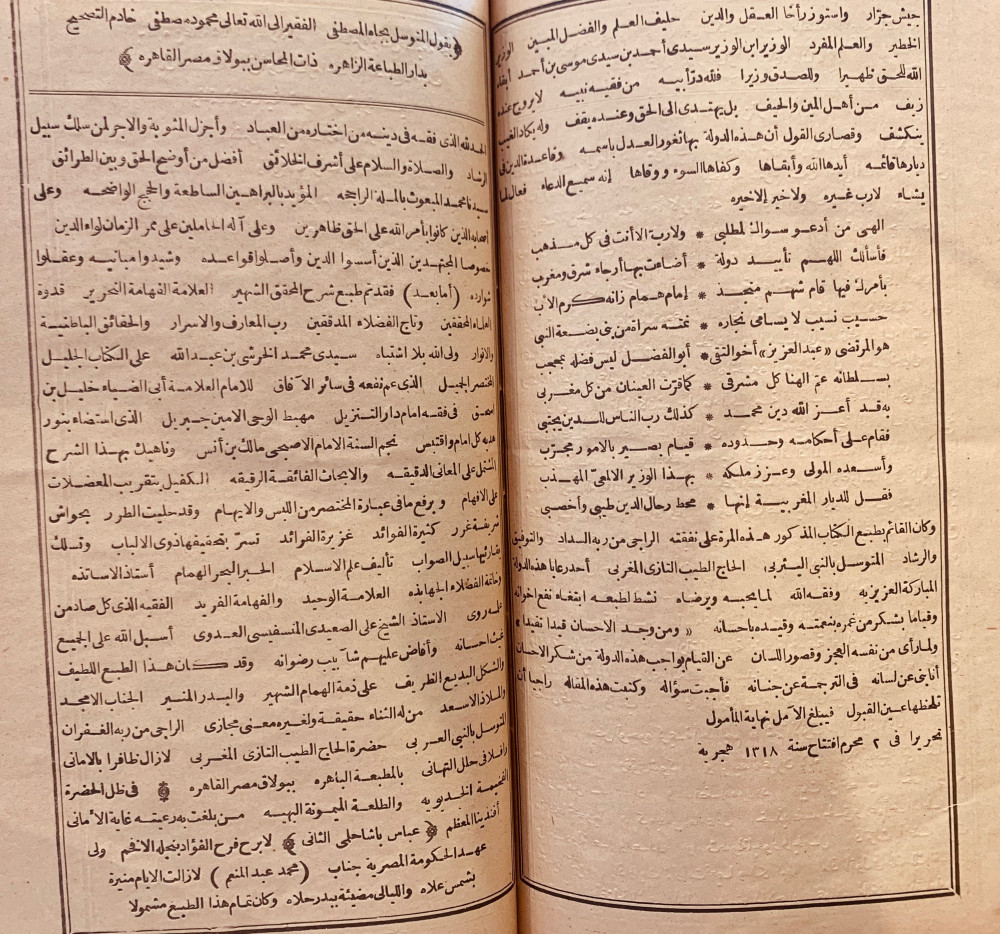 جيش جرار واستوزر أخا العقل والدين حليف العلم والفضل المبين الوزير
الخطير والعلم المفرد الوزير ابن الوزير سيدى أحمد بن سيدى موسى بن أحمد أبقاه
الله للحق ظهيرا وللصدق وزيرا فلله در أبيه من فقيه نبيه لا يروج عنده
زيف من أهل المين والحيف بل يهتدى الى الحق وعنده يقف وله يكاد الغيب
ينكشف وقصارى القول أن هذه الدولة بها ثغور العدل باسمه وقاعدة الدين فى
ديارها قائمه أيدها الله وأبقاها وكفاها السوء ووقاها إنه سميع الدعاء فعال لما
يشاء لا رب غيره ولا خير إلا خيره
الهى من أدعو سواك لمطلبى * ولا ربّ الا أنت فى كل مذهب
فأسألك اللهم تأييد دولة * أضاءت بها أرجاء شرق ومغرب
بأمرك فيها قام شهم ممجد * إمام همام زانه كرم الاب
حسيب نسيب لا يسامى نجاره * نمته سراة من بنى بضعة النبى
هو المرتضى «عبد العزيز» أخو التقى * أبو الفضل ليس فضله بمحجب
بسلطانه عمّ الهنا كل مشرقى * كما قرّت العينان من كل مغربى
به قد أعز الله دين محمد * كذلك رب الناس للدين يجتبى
فقام على أحكامه وحدوده * قيام بصير بالامور مجرّب
وأسعده المولى وعزز ملكه * بهذا الوزير الالمعىّ المهذب
فقل للديار المغربية إنها * محط رحال الدين طيبى وأخصبى
وكان القائم بطبع الكتاب المذكور هذه المرة على نفقته الراجى من ربه السداد والتوفيق
والرشاد المتوسل بالنبى اليثربى الحاج الطيب التازى المغربى أحد رعايا هذه الدولة
المباركة العزيزيه وفقه الله لما يحبه ويرضاه نشط لطبعه ابتغاء نفع اخوانه
وقياما بشكر من غمره بنعمته وقيده باحسانه «ومن وجد الاحسان قيدا تقيدا»
ولما رأى من نفسه العجز وقصور اللسان عن القيام بواجب هذه الدولة من شكر الاحسان
أنابنى عن لسانه فى الترجمة عن جنانه فأجبت سؤاله وكتبت هذه المقاله راجيا أن
تلحظها عين القبول فيبلغ الآمل نهاية المأمول
تحريرا فى ٢ محرم افتتاح سنة ١٣١٨ هجرية
﴿يقول المتوسل بجاه المصطفى الفقير الى الله تعالى محمود مصطفى خادم التصحيح
بدار الطباعة الزاهره ذات المحاسن ببولاق مصر القاهره﴾
الحمد لله الذى فقه فى دينه من اختاره من العباد وأجزل المثوبة والاجر لمن سلك سبيل
الرشاد والصلاة والسلام على أشرف الخلائق أفضل من أوضح الحق وبين الطرائق
سيدنا محمد المبعوث بالملة الراجحه المؤيد بالبراهين الساطعة والحجج الواضحه وعلى
أصحابه الذين كانوا بأمر الله على الحق ظاهرين وعلى آله الحاملين على ممر الزمان لواء الدين
خصوصا المجتهدين الذين أسسوا الدين وأصلوا قواعده وشيدوا مبانيه وعقلوا
شوارده (أما بعد) فقد تم طبع شرح المحقق الشهير العلامة الفهامة النحرير قدوة
العلماء المحققين وتاج الفضلاء المدققين رب المعارف والاسرار والحقائق الباطنية
والانوار ولى الله بلا اشتباه سيدى محمد الخرشى بن عبد الله على الكتاب الجليل
المختصر الجميل الذى عم نفعه فى سائر الآفاق للامام العلامة أبى الضياء خليل بن
اسحق فى فقه امام دار التنزيل مهبط الوحى الامين جبريل الذى استضاء بنور
هديه كل امام واقتبس نجم السنة الامام الاصبحى مالك بن أنس وناهيك بهذا الشرح
المشتمل على المعانى الدقيقه والابحاث الفائقة الرقيقه الكفيل بتقريب المعضلات
على الافهام ويرفع ما فى عبارة المختصر من اللبس والايهام وقد حليت الطرر بحواش
شريفة غرر كثيرة الفوائد غزيرة الفرائد تسر بتحقيقها ذوى الالباب وتسلك
بقارئها سبيل الصواب تأليف علم الاسلام الحبر البحر الهمام أستاذ الاساتذه
وخاتمة الفضلاء الجهابذه العلامة الوحيد والفهامة الفريد الفقيه الذى كل صاد من
علمه روى الاستاذ الشيخ على الصعيدى المنسفيسى العدوى أسبل الله على الجميع
غيث احسانه وأفاض عليهم شآبيب رضوانه وقد كان هذا الطبع اللطيف
والشكل البديع الظريف على ذمة الهمام الشهير والبدر المنير الجناب الامجد
والملاذ الاسعد من له الثناء حقيقة ولغيره معنى مجازى الراجى من ربه الغفران
المتوسل بالنبى العربى حضرة الحاج الطيب التازى المغربى لا زال ظافرا بالامانى
رافلا فى حلل التهانى بالمطبعة الباهره ببولاق مصر القاهره فى ظل الحضرة
الفخيمة الخديويه والطلعة الميمونة البهيه من بلغت به رعيته غاية الأمانى
أفندينا المعظم ﴿عباس باشا حلمى الثانى﴾ لا برح قرح الفؤاد بنجله الافخم ولى
عهد الحكومة المصرية جناب (محمد عبد المنعم) لا زالت الايام منيرة
بشمس علاه والليالى مضيئة ببدر حلاه وكان تمام هذا الطبع مشمولا